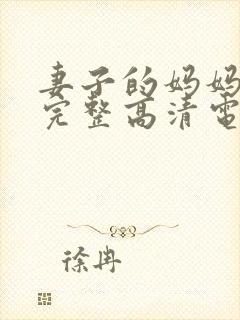 妻子的妈妈
完整高清电
徐冉